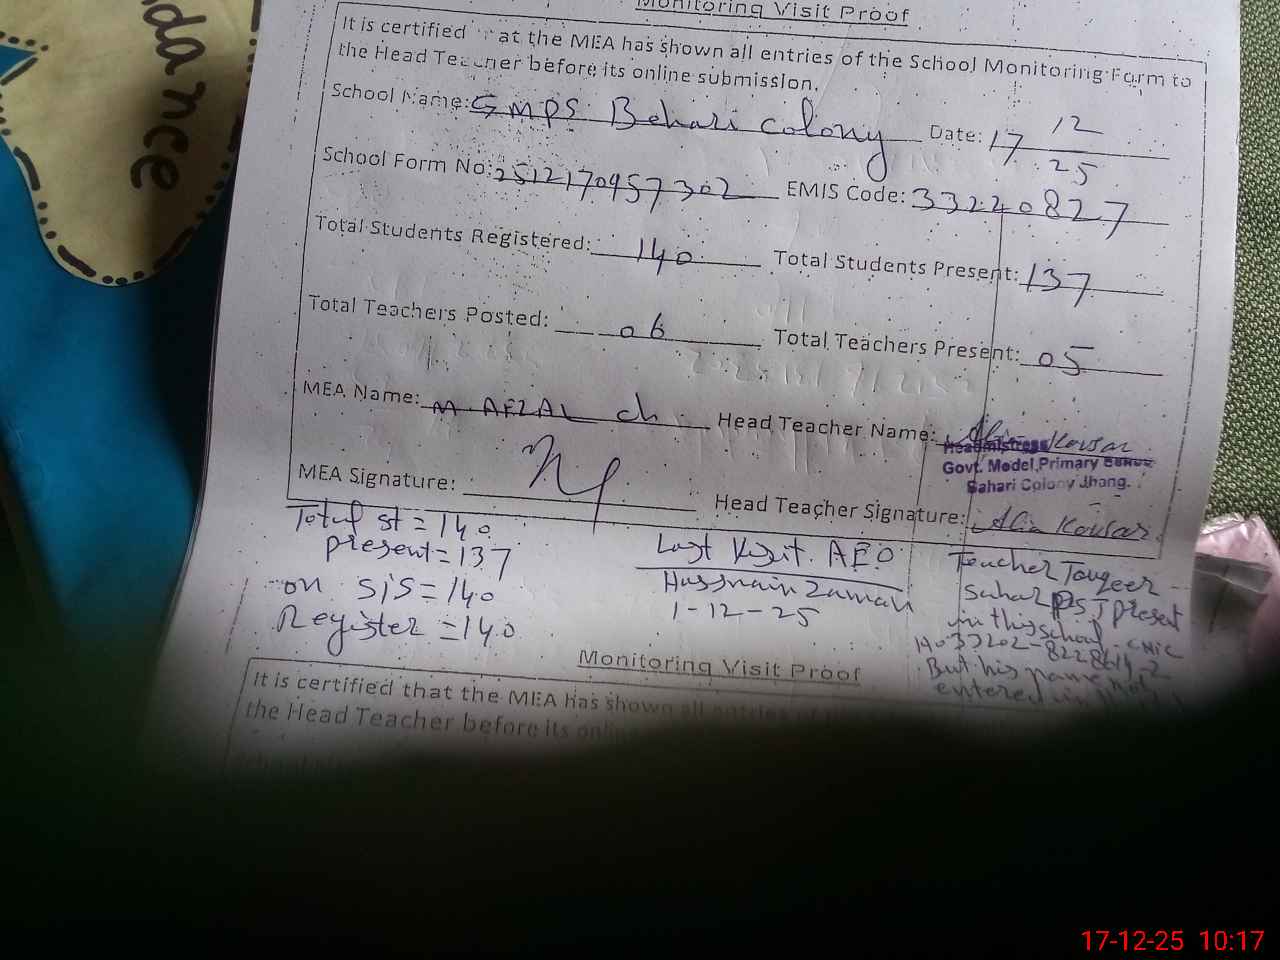 dance
Monitoring Visit Proof
It is certified that the MEA has shown all entries of the School Monitoring Form to
the Head Teacher before its online submission.
School Name: GMPS Behari colony Date: 17 12/25
School Form No: 2512170957302 EMIS Code: 33240827
Total Students Registered: 140 Total Students Present: 137
Total Teachers Posted: 06 Total Teachers Present: 05
MEA Name: M AFZAL ch Head Teacher Name: Alia Kousar
Headmistress
Govt. Model Primary
Colony Jhang.
MEA Signature: Head Teacher Signature: Alia Kousar
Total st = 140
present = 137
on SiS = 140
Register = 140
Last Visit. AEO
Hassnain Zaman
1-12-25
Teacher Touqeer
Sahar PST present
in this school. CNIC
But his name not
entered in
Monitoring Visit Proof
It is certified that the MEA has shown all entries of
the Head Teacher before its
17-12-25 10:17